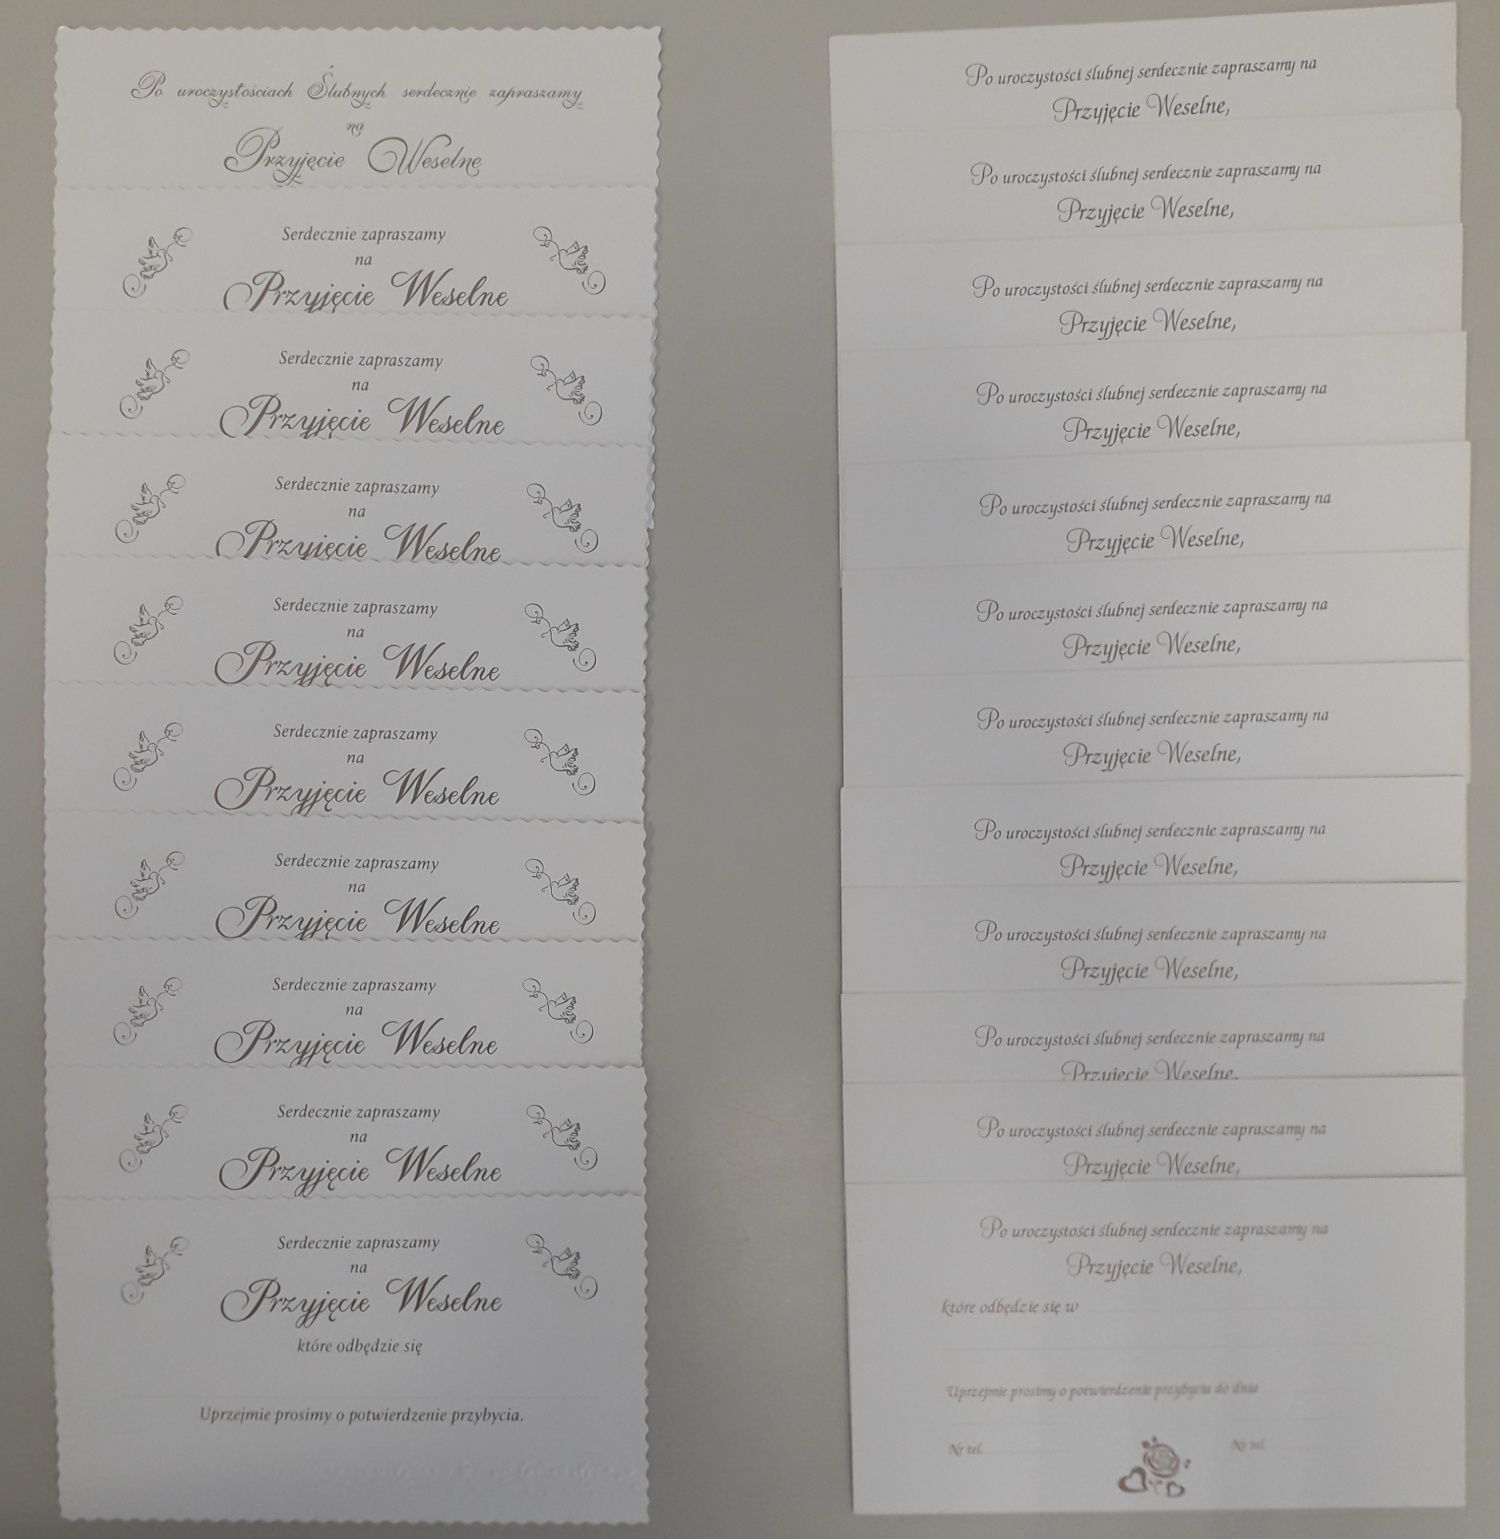 Po uroczystościach Ślubnych serdecznie zapraszamy
na
Przyjęcie Weselne
Serdecznie zapraszamy
na
Przyjęcie Weselne
Serdecznie zapraszamy
na
Przyjęcie Weselne
Serdecznie zapraszamy
na
Przyjęcie Weselne
Serdecznie zapraszamy
na
Przyjęcie Weselne
Serdecznie zapraszamy
na
Przyjęcie Weselne
Serdecznie zapraszamy
na
Przyjęcie Weselne
Serdecznie zapraszamy
na
Przyjęcie Weselne
Serdecznie zapraszamy
na
Przyjęcie Weselne
Serdecznie zapraszamy
na
Przyjęcie Weselne
które odbędzie się
Uprzejmie prosimy o potwierdzenie przybycia.
Po uroczystości ślubnej serdecznie zapraszamy na
Przyjęcie Weselne,
Po uroczystości ślubnej serdecznie zapraszamy na
Przyjęcie Weselne,
Po uroczystości ślubnej serdecznie zapraszamy na
Przyjęcie Weselne,
Po uroczystości ślubnej serdecznie zapraszamy na
Przyjęcie Weselne,
Po uroczystości ślubnej serdecznie zapraszamy na
Przyjęcie Weselne,
Po uroczystości ślubnej serdecznie zapraszamy na
Przyjęcie Weselne,
Po uroczystości ślubnej serdecznie zapraszamy na
Przyjęcie Weselne,
Po uroczystości ślubnej serdecznie zapraszamy na
Przyjęcie Weselne,
Po uroczystości ślubnej serdecznie zapraszamy na
Przyjęcie Weselne,
Po uroczystości ślubnej serdecznie zapraszamy na
Przyjęcie Weselne,
Po uroczystości ślubnej serdecznie zapraszamy na
Przyjęcie Weselne,
Po uroczystości ślubnej serdecznie zapraszamy na
Przyjęcie Weselne,
które odbędzie się w
Uprzejmie prosimy o potwierdzenie przybycia do dnia
Nr tel. Nr tel.